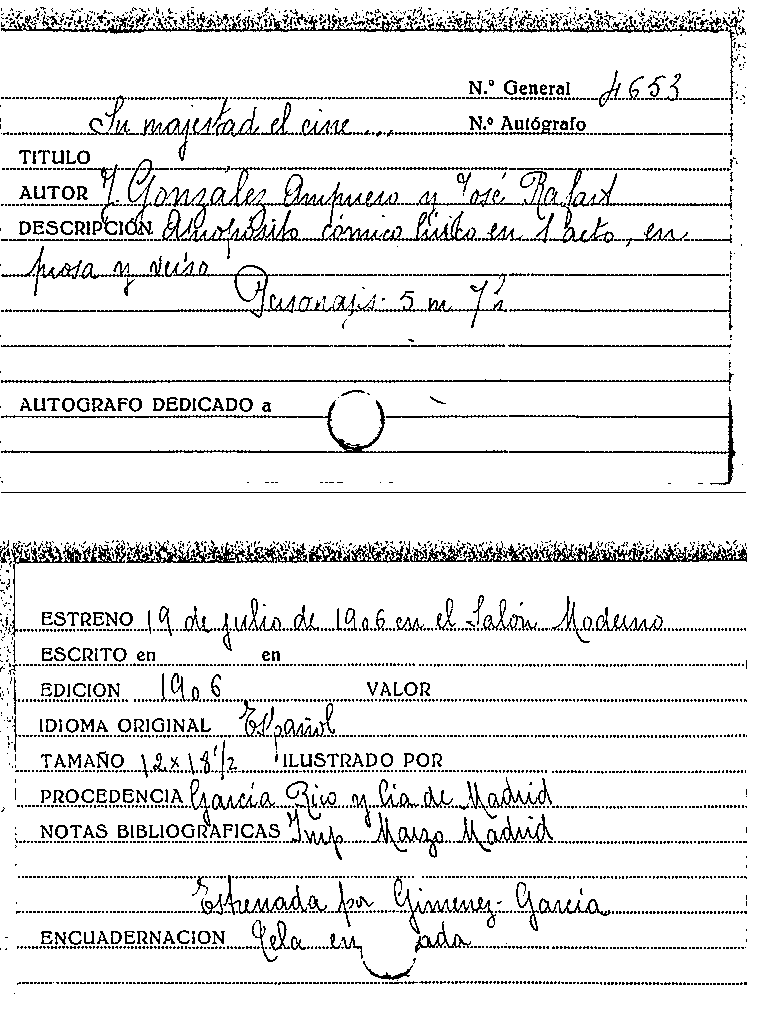 N.º General 4653
Su majestad el cine....
N.º Autógrafo
TITULO
AUTOR J. González Ampuero y José Rafart
DESCRIPCIÓN Apropósito cómico lírico en 1 acto, en
prosa y verso
Personajes: 5 m 7 h
AUTOGRAFO DEDICADO a
ESTRENO 19 de julio de 1906 en el Salón Moderno
ESCRITO en en
EDICION 1906 VALOR
IDIOMA ORIGINAL Español
TAMAÑO 12 x 18 1/2 ILUSTRADO POR
PROCEDENCIA García Rico y Cia de Madrid
NOTAS BIBLIOGRAFICAS Imp Marzo Madrid
Estrenada por Gimenez-García
ENCUADERNACION Tela en ada